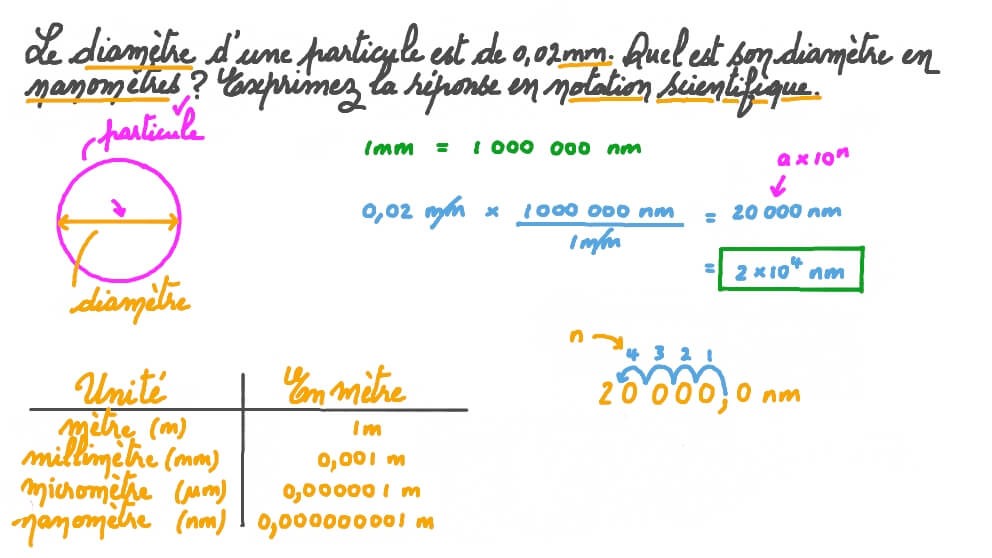 Le diamètre d'une particule est de 0,02mm. Quel est son diamètre en
nanomètres ? Exprimez la réponse en notation scientifique.
particule
1mm = 1 000 000 nm
a × 10ⁿ
0,02 mm × 1000 000 nm / 1mm = 20 000 nm
= 2 × 10⁴ nm
diamètre
n
4 3 2 1
20 000,0 nm
Unité En mètre
mètre (m) 1m
millimètre (mm) 0,001 m
micromètre (μm) 0,000001 m
nanomètre (nm) 0,000000001 m